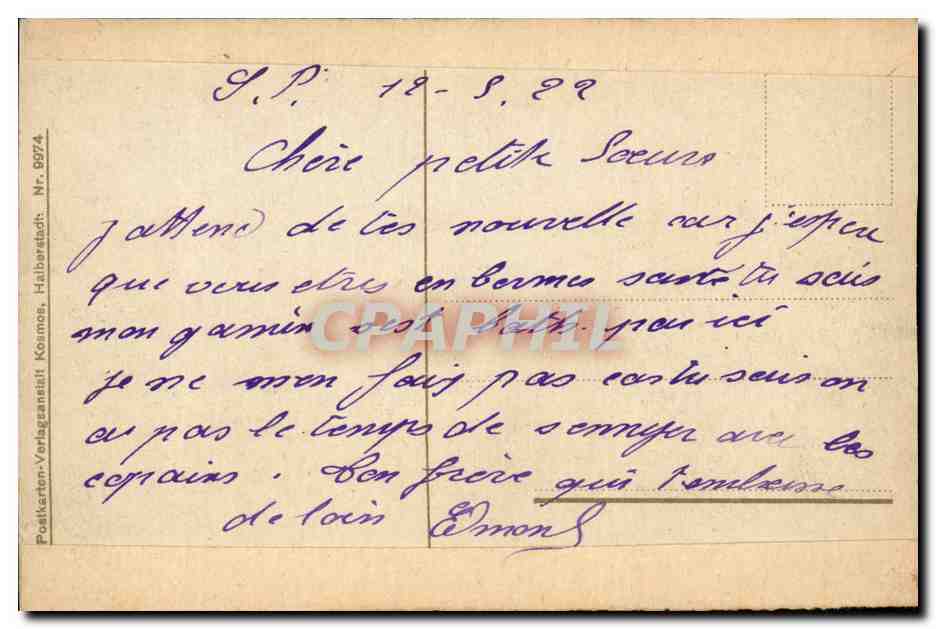 S.P. 12-5.22
Chère petite Soeurs
j attend de tes nouvelle car j'espere
que vous etres en bonnes santé tu sais
mon gamin s'est bath par ici
je ne men fais pas car tu sais on
a pas le temps de sennuyer avec les
copains. Ton frère qui t'embrasse
de loin Edmond
Postkarten-Verlagsanstalt Kosmos, Halberstadt. Nr. 9974.
CPAPHIL